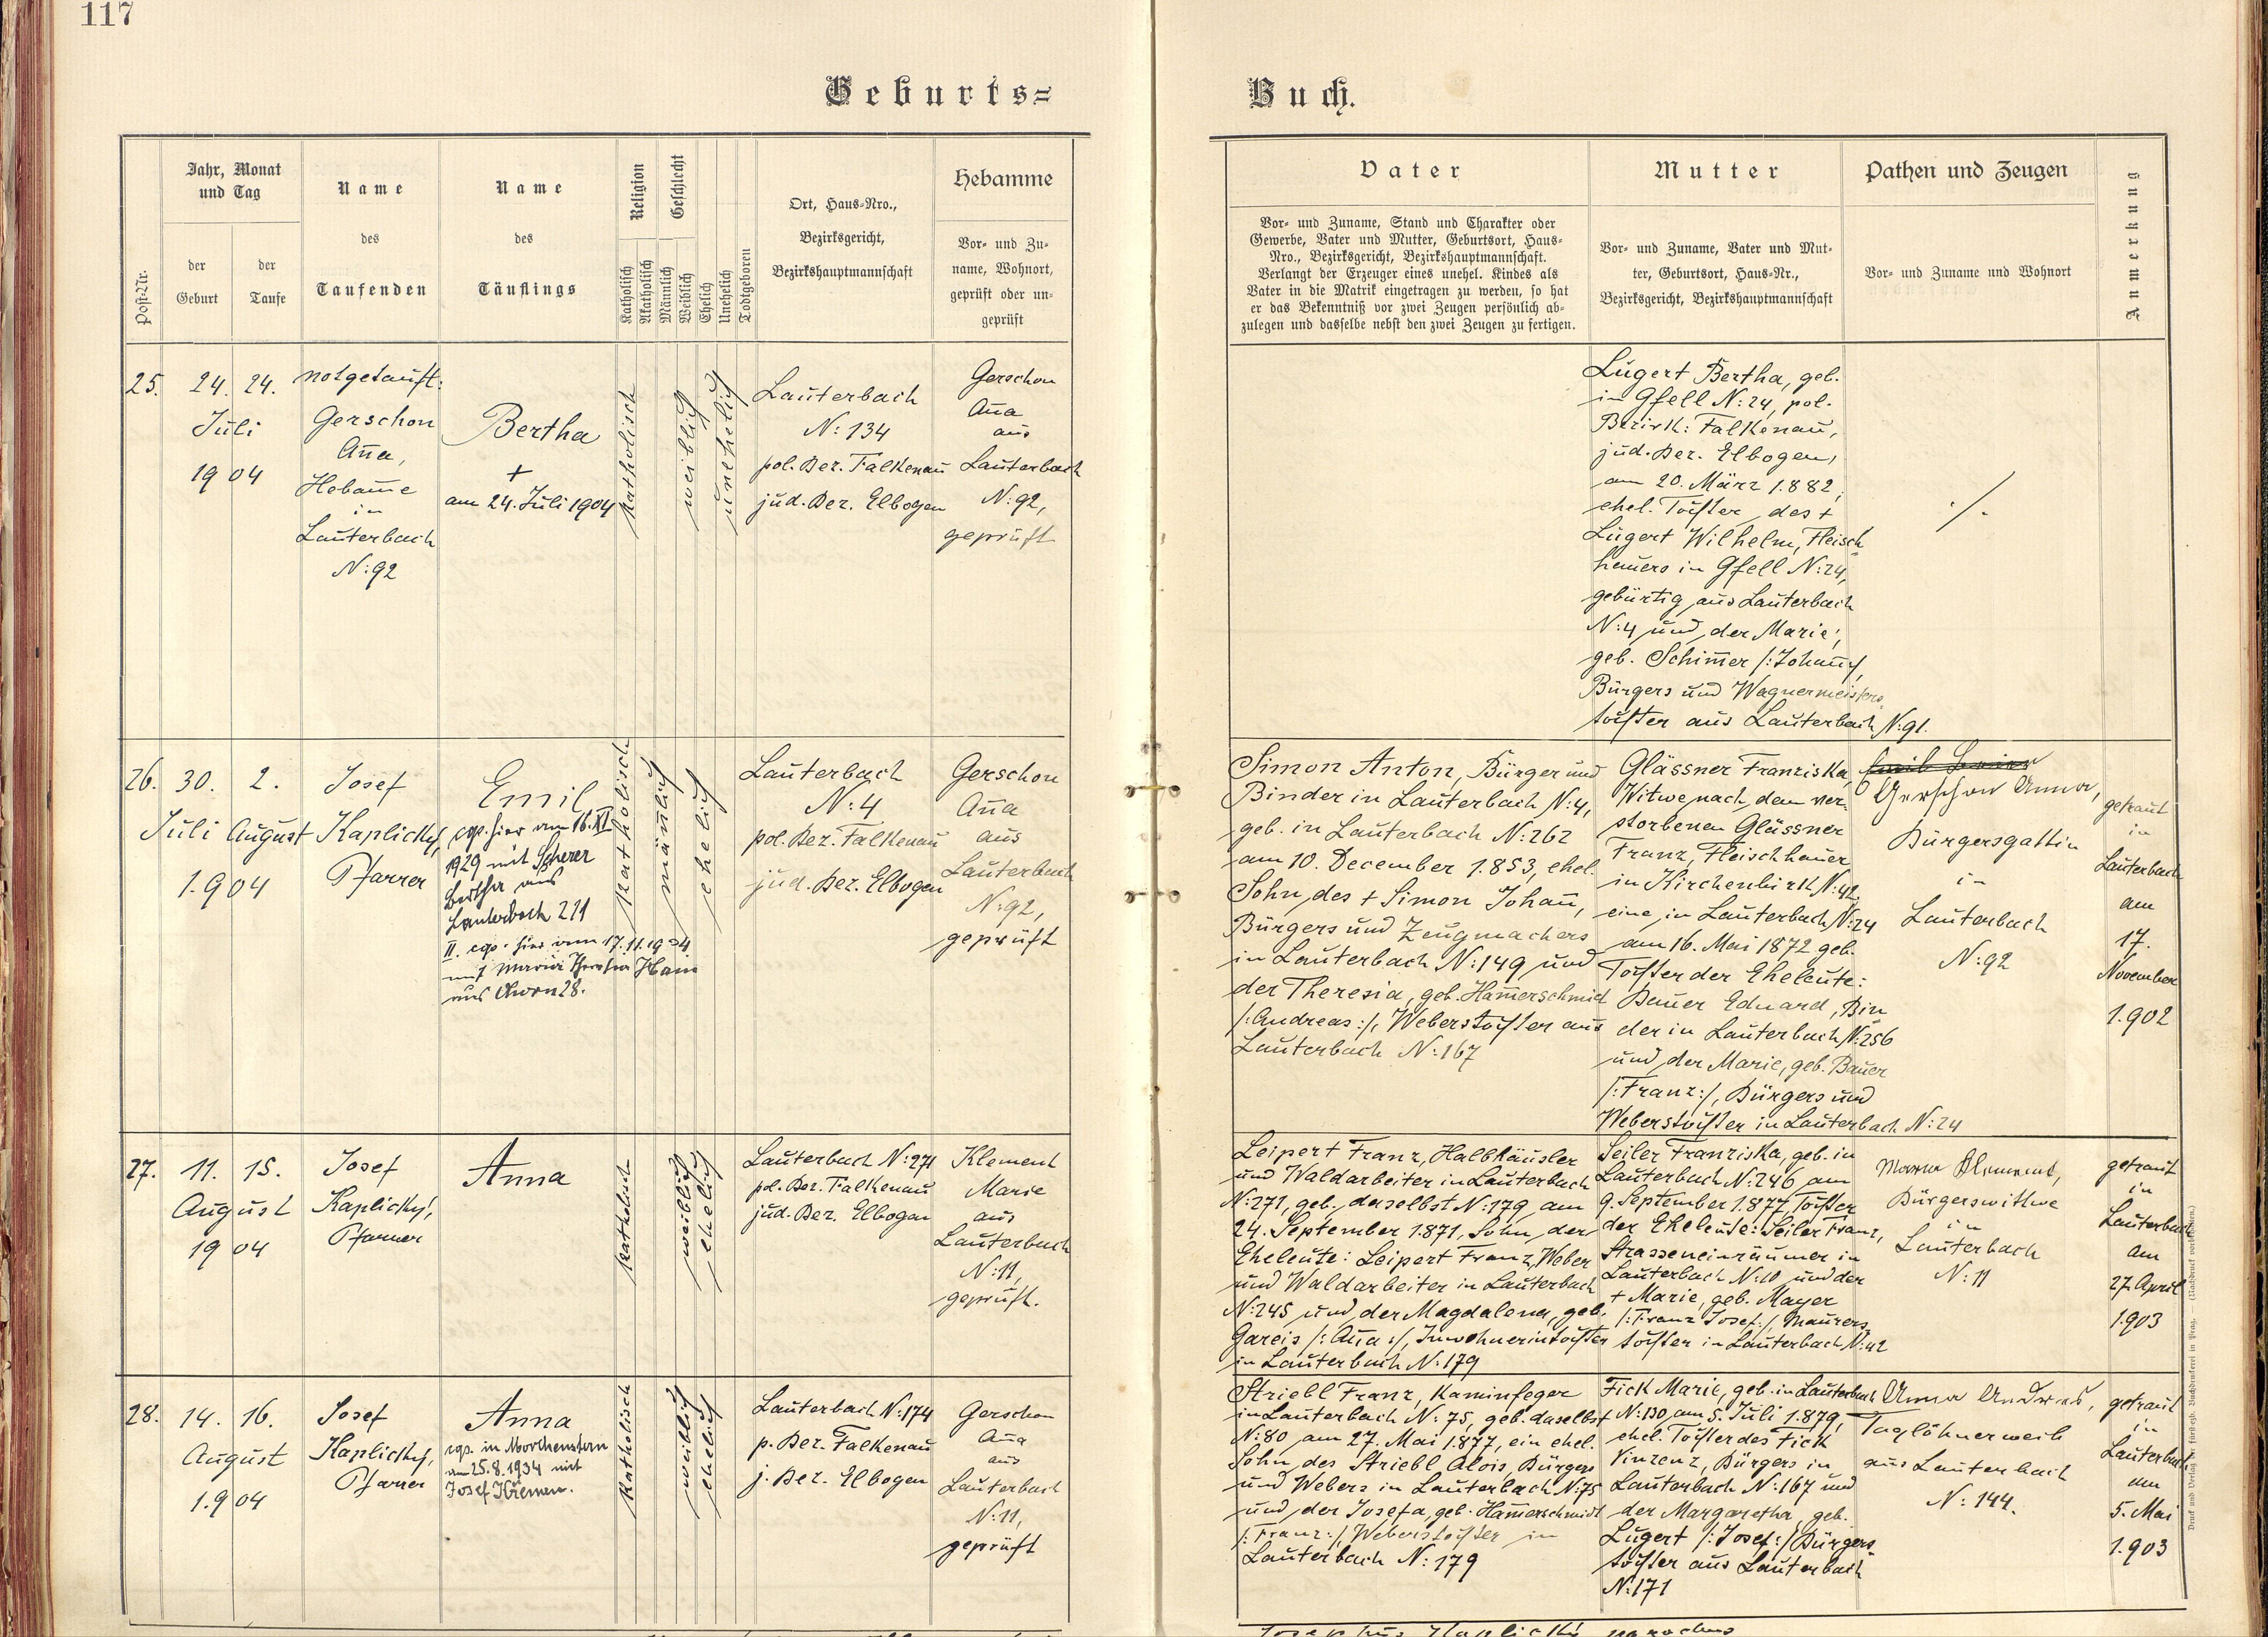 117
Geburts=
Buch.
Post-Nr.
Jahr, Monat
und Tag
der
Geburt
der
Taufe
Name
des
Taufenden
Name
des
Täuflings
Religion
Katholisch
Akatholisch
Geschlecht
Männlich
Weiblich
Ehelich
Unehelich
Todtgeboren
Ort, Haus=Nro.,
Bezirksgericht,
Bezirkshauptmannschaft
Hebamme
Vor= und Zu=
name, Wohnort,
geprüft oder un=
geprüft
Vater
Vor= und Zuname, Stand und Charakter oder
Gewerbe, Vater und Mutter, Geburtsort, Haus=
Nro., Bezirksgericht, Bezirkshauptmannschaft.
Verlangt der Erzeuger eines unehel. Kindes als
Vater in die Matrik eingetragen zu werden, so hat
er das Bekenntniß vor zwei Zeugen persönlich ab=
zulegen und dasselbe nebst den zwei Zeugen zu fertigen.
Mutter
Vor= und Zuname, Vater und Mut=
ter, Geburtsort, Haus=Nr.,
Bezirksgericht, Bezirkshauptmannschaft
Pathen und Zeugen
Vor= und Zuname und Wohnort
Anmerkung
25.
24. 24.
Juli
19 04
notgetauft:
Gerschon
Aña,
Hebam̄e
in
Lauterbach
N:92
Bertha
+
am 24. Juli 1904
katholisch
weiblich
unehelich
Lauterbach
N:134
pol. Bez. Falkenau
jud. Bez. Elbogen
Gerschon
Aña
aus
Lauterbach
N:92,
geprüft
Lugert Bertha, geb.
in Gfell N:24, pol.
Bezirk: Falkenau,
jud. Bez. Elbogen,
am 20. März 1.882,
ehel. Tochter des +
Lugert Wilhelm, Fleisch
hauers in Gfell N:24,
gebürtig aus Lauterbach
N:4 und der Marie,
geb. Schim̄er /:Johañ/
Bürgers und Wagnermeisters
tochter aus Lauterbach N:91.
./.
26.
30. 2.
Juli August
1.904
Josef
Kaplický,
Pfarrer
Emil
cop. hier am 16.XI
1929 mit Scherer
Bertha aus
Lauterbach 211
II. cop. hier am 17.11.1934
mit Maria Theresia Hain
aus 28.
katholisch
mäñlich
ehelich
Lauterbach
N:4
pol. Bez. Falkenau
jud. Bez. Elbogen
Gerschon
Aña
aus
Lauterbach
N:92,
geprüft
Simon Anton, Bürger und
Binder in Lauterbach N:4,
geb. in Lauterbach N:262
am 10. December 1.853, ehel.
Sohn des + Simon Johañ,
Bürgers und Zeugmachers
in Lauterbach N:149 und
der Theresia, geb. Ham̄erschmid
/:Andreas:/, Weberstochter aus
Lauterbach N:167
Glässner Franziska,
Witwe nach dem ver
storbenen Glässner
Franz, Fleischhauer
in Kirchenbirk N:42,
eine in Lauterbach N:24
am 16. Mai 1872 geb.
Tochter der Eheleute:
Bauer Eduard, Bin
der in Lauterbach N:256
und der Marie, geb. Bauer
/:Franz:/, Bürgers und
Weberstochter in Lauterbach N:24
Gerschon Anna,
Bürgersgattin
in
Lauterbach
N:92
getraut
in
Lauterbach
am
17.
November
1.902
27.
11. 15.
August
19 04
Josef
Kaplický,
Pfarrer
Anna
katholisch
weiblich
ehelich
Lauterbach N:271
pol. Bez. Falkenau
jud. Bez. Elbogen
Klement
Marie
aus
Lauterbach
N:11,
geprüft.
Leipert Franz, Halbhäusler
und Waldarbeiter in Lauterbach
N:271, geb. daselbst N:179 am
24. September 1.871, Sohn der
Eheleute: Leipert Franz, Weber
und Waldarbeiter in Lauterbach
N:245 und der Magdalena, geb.
Gareis /:Aña:/, Inwohnerintochter
in Lauterbach N:179
Seiler Franziska, geb. in
Lauterbach N:246 am
9. September 1.877, Tochter
der Eheleute: Seiler Franz,
Strasseneinräumer in
Lauterbach N:10 und der
+ Marie, geb. Mayer
/:Franz Josef:/, Maurers
tochter in Lauterbach N:42
Maria Klement,
Bürgerswittwe
in
Lauterbach
N:11
getraut
in
Lauterbach
am
27. April
1.903
28.
14. 16.
August
1.9 04
Josef
Kaplický,
Pfarrer
Anna
cop. in Morchenstern
am 25.8.1934 mit
Josef Křemen.
katholisch
weiblich
ehelich
Lauterbach N:174
p. Bez. Falkenau
j. Bez. Elbogen
Gerschon
Aña
aus
Lauterbach
N:11,
geprüft
Striebl Franz, Kaminfeger
in Lauterbach N:75, geb. daselbst
N:80 am 27. Mai 1.877, ein ehel.
Sohn des Striebl Alois, Bürgers
und Webers in Lauterbach N:75
und der Josefa, geb. Ham̄erschmidt
/:Franz:/, Weberstochter in
Lauterbach N:179
Fick Marie, geb. in Lauterbach
N:130 am 5. Juli 1.879,
ehel. Tochter des Fick
Vinzenz, Bürgers in
Lauterbach N:167 und
der Margaretha, geb.
Lugert /:Josef:/ Bürgers
tochter aus Lauterbach
N:171
Anna Andres,
Taglöhnerweib
aus Lauterbach
N:144.
getraut
in
Lauterbach
am
5. Mai
1.903
Josephus Kaplický parochus